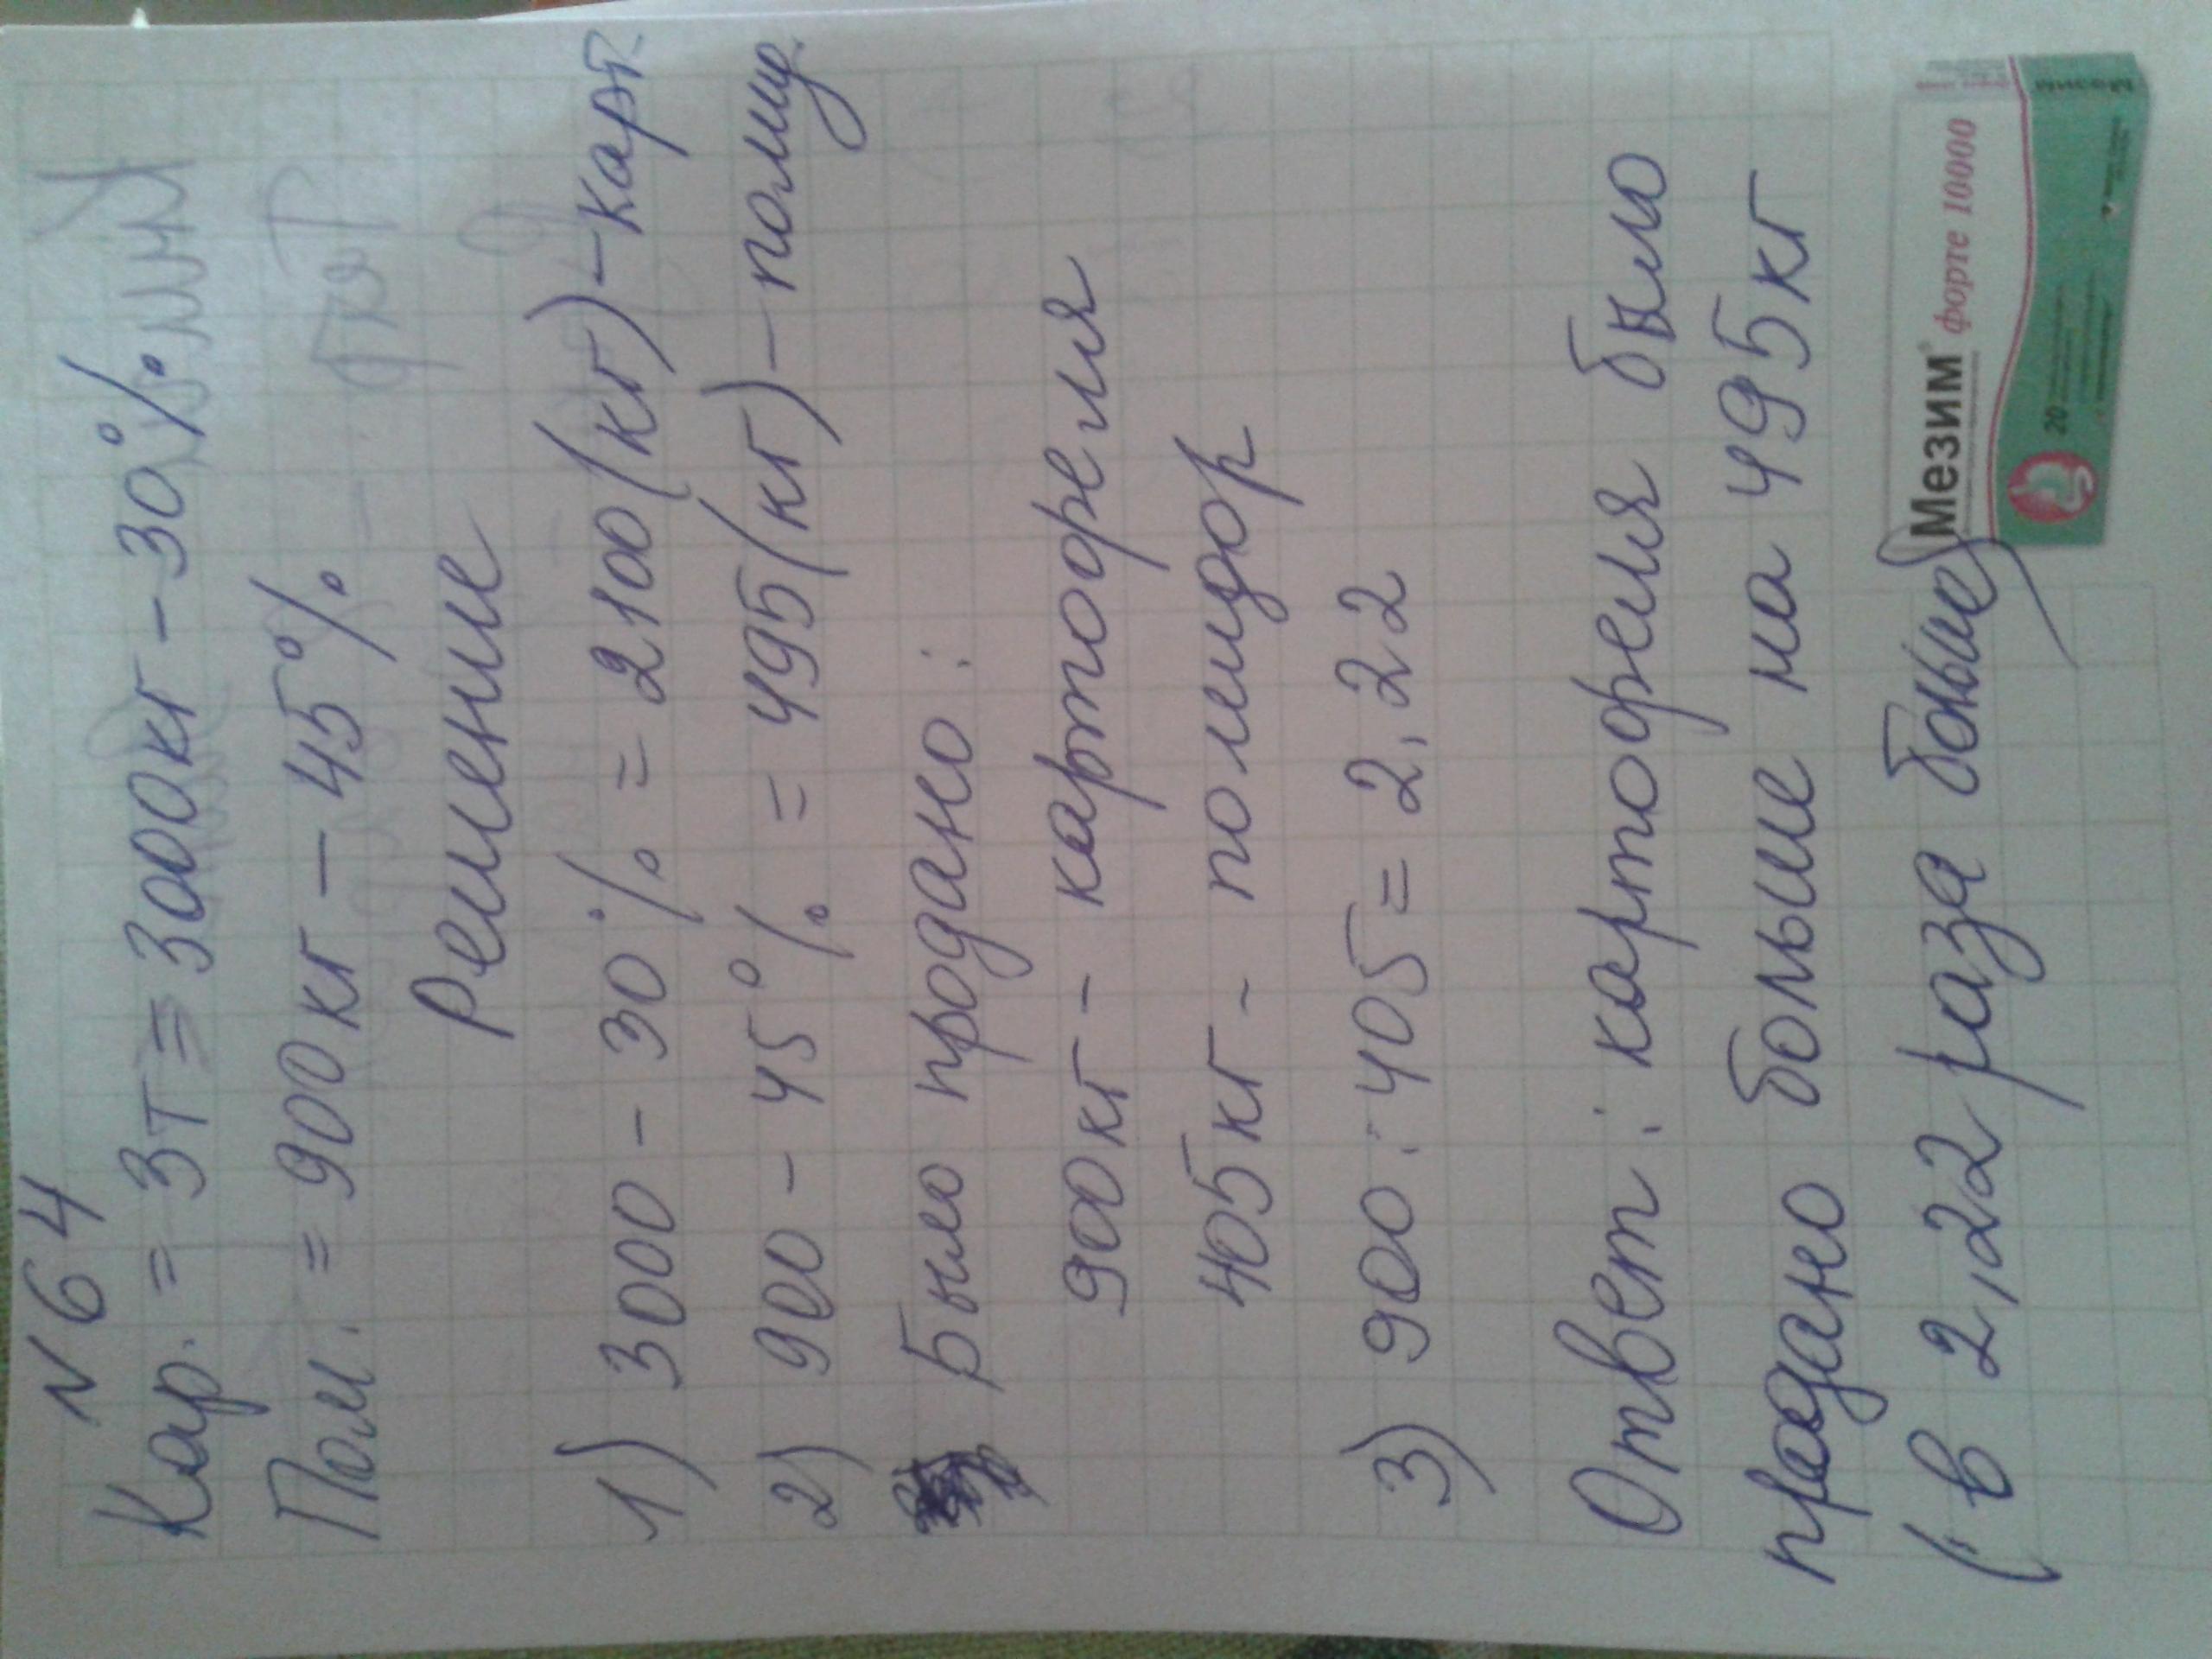 N 64
Кар. = 3т = 3000кг - 30%
Пом. = 900кг - 45%
Решение
1) 3000 - 30% = 2100(кг) - карт.
2) 900 - 45% = 495(кг) - помид.
Было продано:
900кг - картофеля
405кг - помидор
3) 900 : 405 = 2,22
Ответ: картофеля было
продано больше на 495кг
(в 2,22 раза больше)
Мезим® форте 10000
20
Мезим